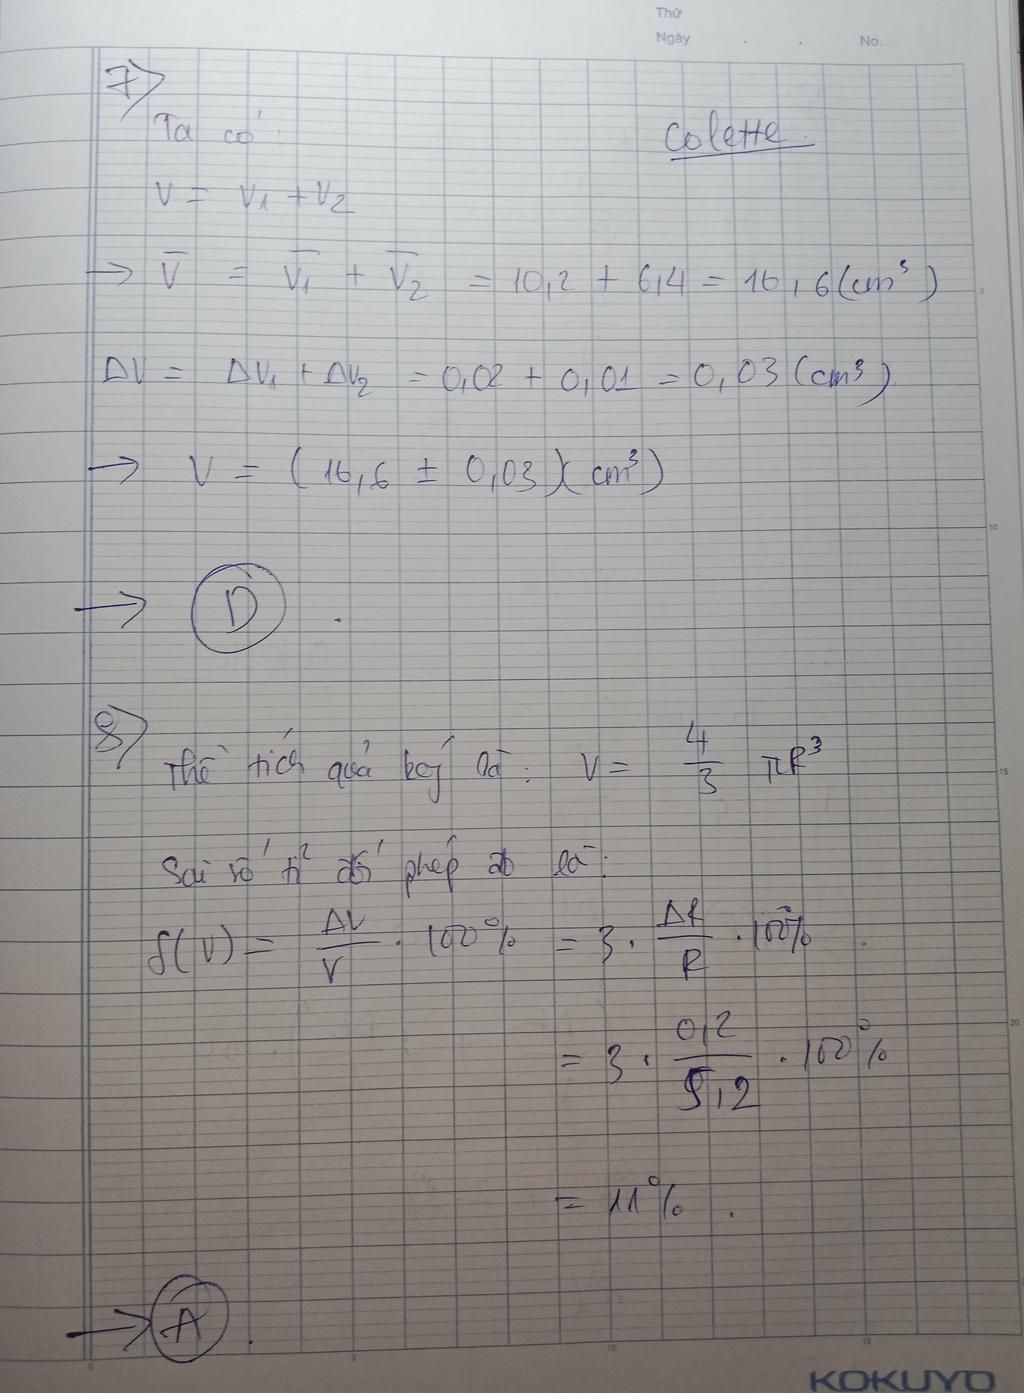 Thứ
Ngày . . No.
7)
Ta có:
Colette.
V = V₁ + V₂
→ V̅ = V̅₁ + V̅₂ = 10,2 + 6,4 = 16,6 (cm³)
ΔV = ΔV₁ + ΔV₂ = 0,02 + 0,01 = 0,03 (cm³)
→ V = (16,6 ± 0,03)(cm³)
→ D .
8)
Thể tích quả cầu là: V = 4/3 πR³
Sai số tỉ đối phép đo là:
δ(V) = ΔV/V . 100% = 3 . ΔR/R . 100%
= 3 . 0,2/5,2 . 100%
= 11% .
→ A .
5
10
15
20
0 5 10 15
KOKUYO